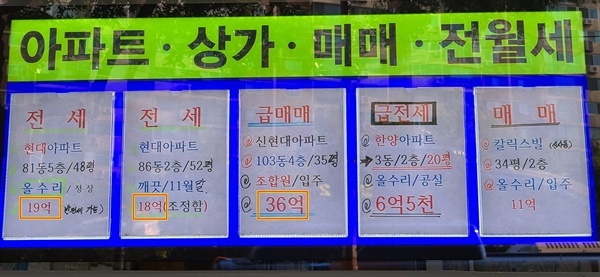 아파트·상가·매매·전월세
전세
현대아파트
81동5층/48평
올수리/정상
19억
전세
현대아파트
86동2층/52평
깨끗/11월말
18억(조정함)
급매매
@신현대아파트
@103동4층/35평
@조합원/입주
@36억
급전세
@한양아파트
→3동/2층/20평
@올수리/공실
@6억5천
매매
@칼릭스빌
@34평/2층
@올수리/입주
11억